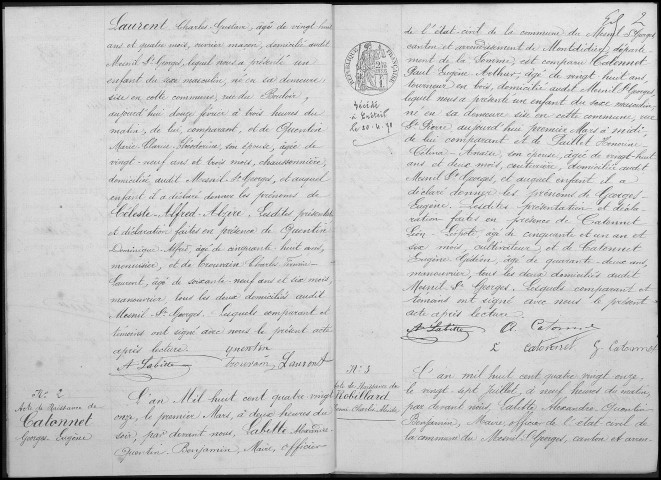 Laurent Charles Gustave, âgé de vingt huit
ans et quatre mois, ouvrier maçon, domicilié audit
Mesnil St Georges, lequel nous a présenté un
enfant du sexe masculin, né en sa demeure
sise en cette commune, rue du
aujourd'hui douze février à trois heures du
matin, de lui, comparant, et de Quentin
Marie son épouse, âgée de
vingt-neuf ans et trois mois,
domiciliée audit Mesnil St Georges, et auquel
enfant il a déclaré donner les prénoms de
Céleste-Alfred-Alzire. Lesdites présentation
et déclaration faites en présence de Quentin
Dominique Alfred, âgé de cinquante huit ans,
menuisier, et de Trouvain Charles
Laurent, âgé de soixante-neuf ans et six mois,
manouvrier, tous les deux domiciliés audit
Mesnil St Georges. Lesquels comparant et
témoins ont signé avec nous le présent acte
après lecture. quentin
A Labitte Trouvain Laurent
N° 2
Acte de Naissance de
Catonnet
Georges Eugène
L'an Mil huit cent quatre vingt
onze, le premier Mars, à deux heures du
soir, par devant nous, Labitte Alexandre
Quentin Benjamin, Maire, officier
2
de l'état-civil de la commune du Mesnil St Georges
canton et arrondissement de Montdidier, départe
ment de la Somme, est comparu Catonnet
Paul Eugène Arthur, âgé de vingt huit ans,
tourneur en bois, domicilié audit Mesnil St Georges,
lequel nous a présenté un enfant du sexe masculin,
né en sa demeure sise en cette commune, rue
St Pierre aujourd'hui premier Mars à midi,
de lui comparant et de Paillet Honorine
Célina son épouse, âgée de vingt-huit
ans et deux mois, couturière, domiciliée audit
Mesnil St Georges, et auquel enfant il a
déclaré donner les prénoms de Georges-
Eugène. Lesdites présentation et décla-
ration faites en présence de Catonnet
Léon âgé de cinquante et un ans et
six mois, cultivateur, et de Catonnet
Eugène âgé de quarante-deux ans,
manouvrier, tous les deux domiciliés audit
Mesnil St Georges. Lesquels comparant et
témoins ont signé avec nous le présent
acte après lecture.
A Labitte A Catonnet
L catonnet G Catonnet
RÉPUBLIQUE FRANÇAISE
Décédé
N° 3
Acte de Naissance de
Robillard
L'an mil huit cent quatre vingt onze,
le vingt-sept Juillet, à neuf heures du matin,
par devant nous, Labitte Alexandre Quentin
Benjamin, Maire, officier de l'état civil de
la commune du Mesnil St Georges, canton et arron-